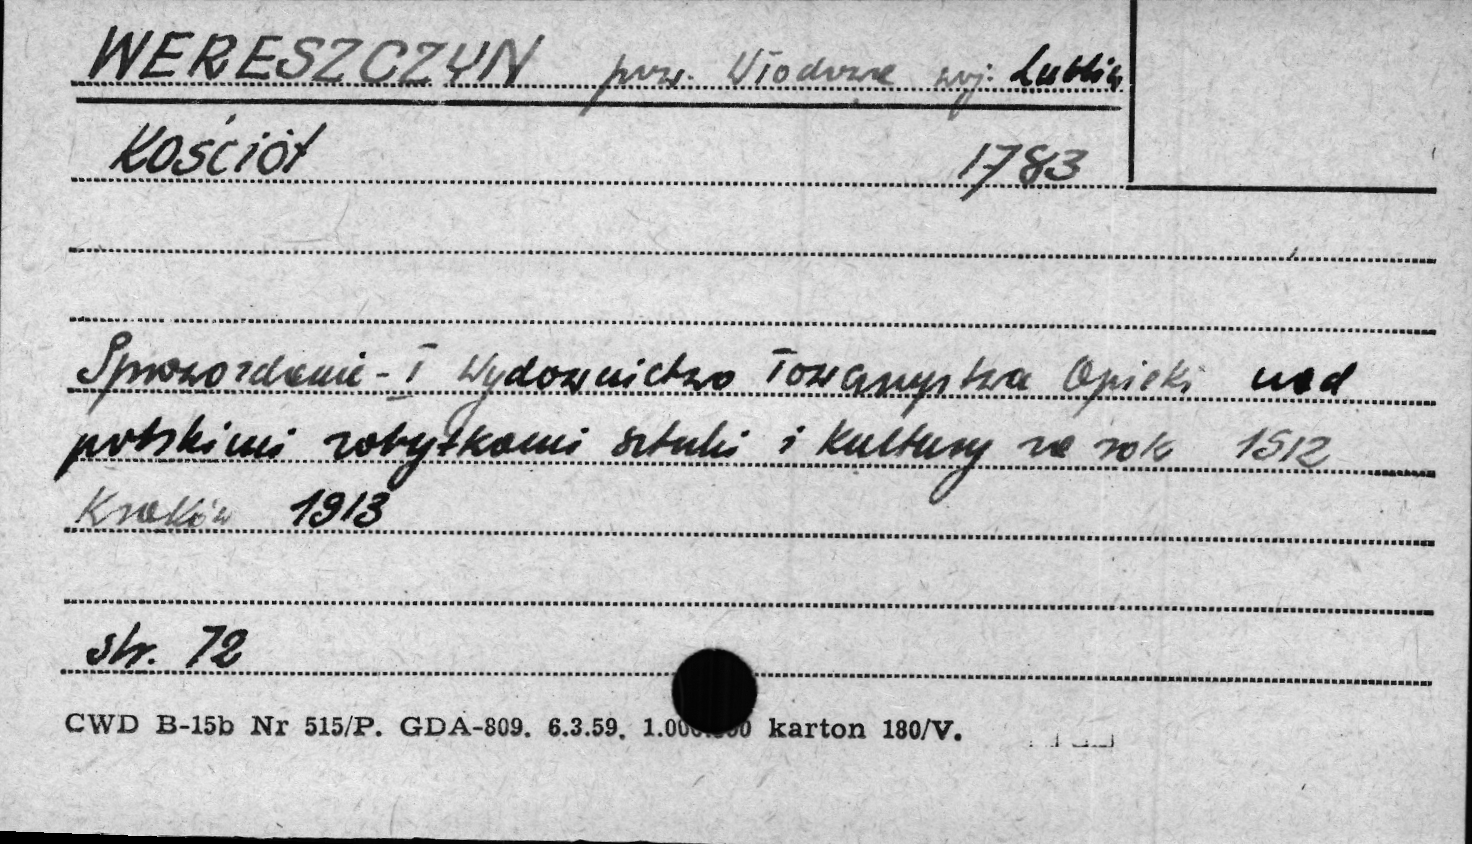 WERESZCZYN pow. Włodawa woj: Lublin
Kościół 1783
Sprawozdanie - I Wydawnictwo Towarzystwa Opieki nad
polskimi zabytkami sztuki i kultury za rok 1912
Kraków 1913
str. 72
CWD B-15b Nr 515/P. GDA-809. 6.3.59. 1.000.000 karton 180/V.